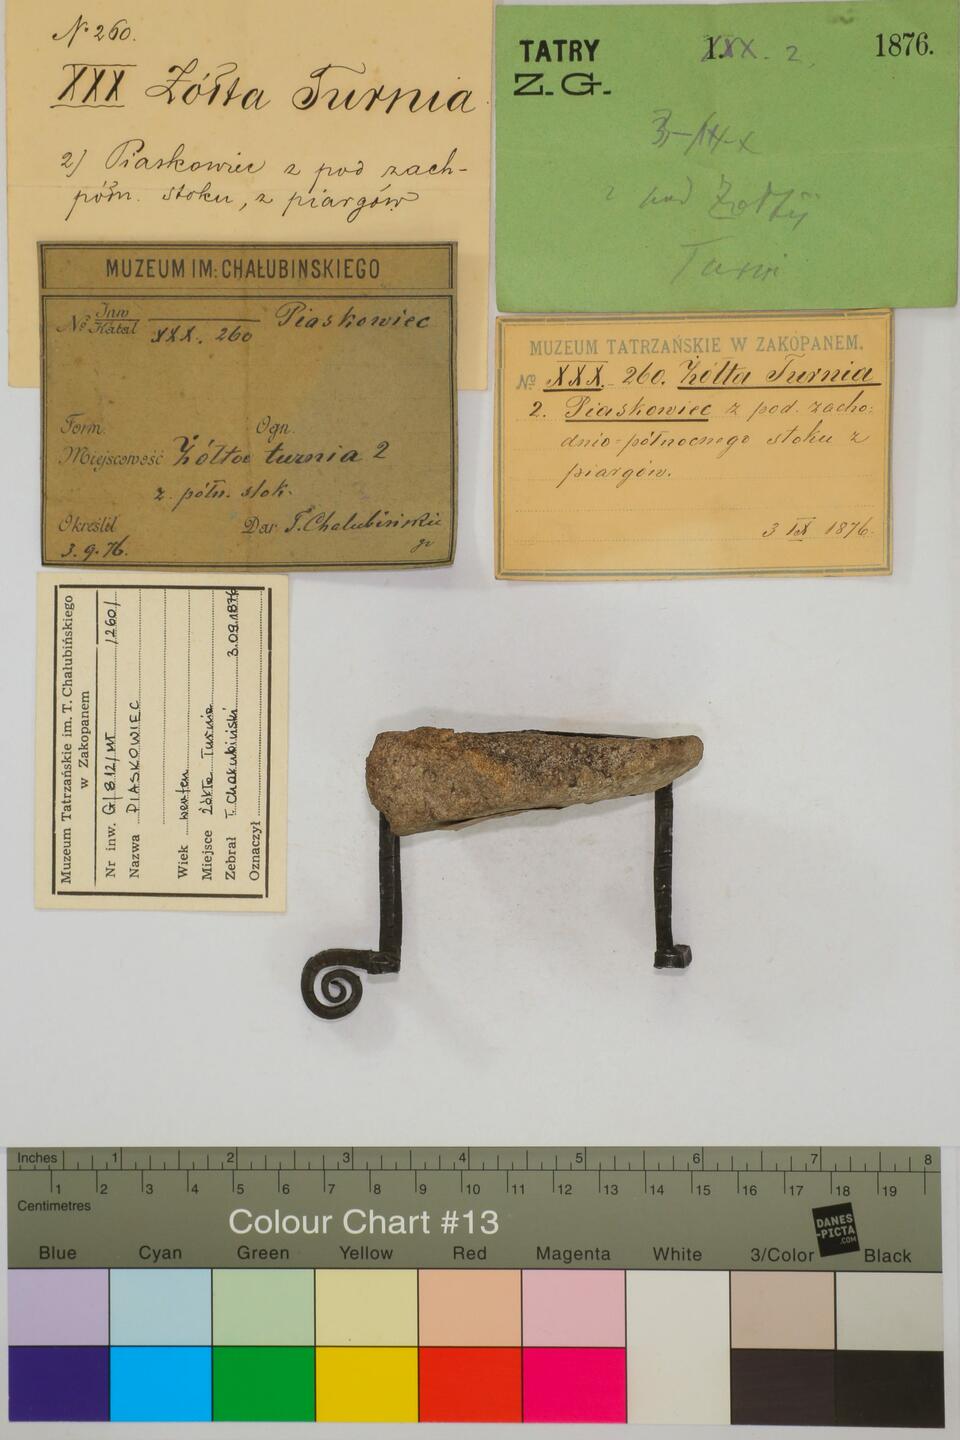 N° 260.
XXX Żółta Turnia
2) Piaskowiec z pod zach-
półn. stoku, z piargów
TATRY
Z. G.
XXX. 2.
1876.
3-IX-X
z pod Żółtej
Turni
MUZEUM IM: CHAŁUBINSKIEGO
№ Inw
Katal
XXX. 260
Piaskowiec
Form.
Ogn.
Miejscowość Żółta turnia 2
z. półn. stok.
Określił
Dar T. Chałubiński
3. 9. 76.
MUZEUM TATRZAŃSKIE W ZAKOPANEM.
№ XXX. 260. Żółta Turnia
2. Piaskowiec z pod. zacho-
dnio-północnego stoku z
piargów.
3 IX 1876.
Muzeum Tatrzańskie im. T. Chałubińskiego
w Zakopanem
Nr inw. G/812/MT /260/
Nazwa PIASKOWIEC
Wiek werfen
Miejsce Żółta Turnia
Zebrał T. Chałubiński 3.09.1876
Oznaczył
Inches 1 2 3 4 5 6 7 8
1 2 3 4 5 6 7 8 9 10 11 12 13 14 15 16 17 18 19
Centimetres
Colour Chart #13
DANES
-PICTA
.COM
Blue Cyan Green Yellow Red Magenta White 3/Color Black